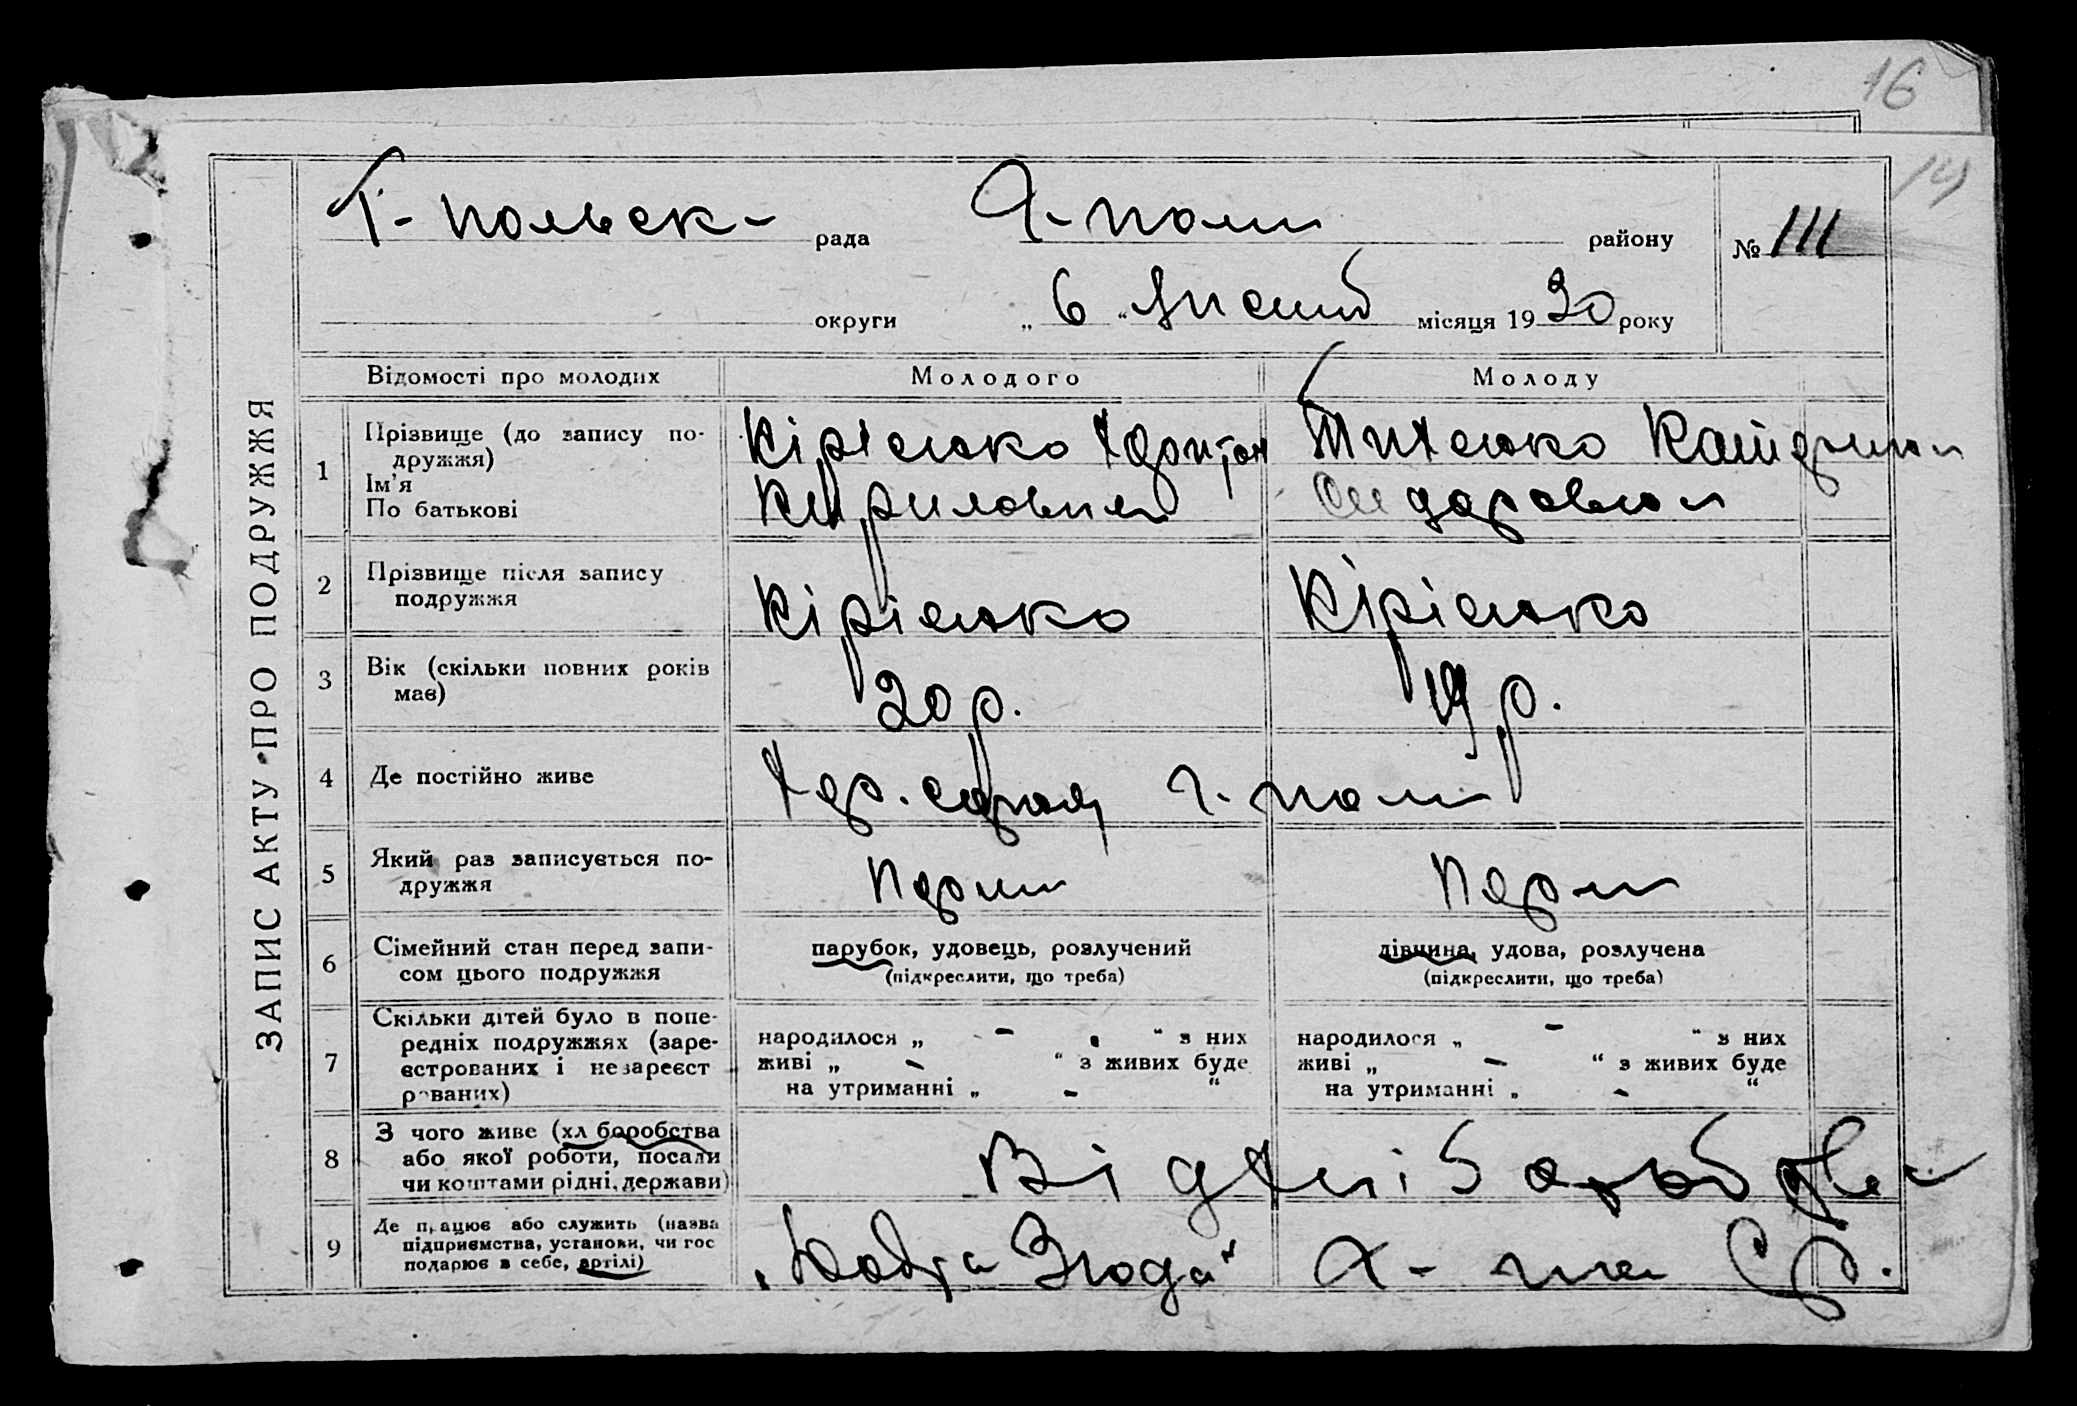 16
14
ЗАПИС АКТУ ПРО ПОДРУЖЖЯ
Г- польск- рада Г-поли району № 111
округи „ 6 “ місяця 1930 року
Відомості про молодих Молодого Молоду
1 Прізвище (до запису по-
дружжя)
Ім'я
По батькові
Кірієнко Харитон
Кирилович
Тихенко Катерина
Сидоровна
2 Прізвище після запису
подружжя
Кірієнко Кірієнко
3 Вік (скільки повних років
має)
20 р. 19 р.
4 Де постійно живе
5 Який раз записується по-
дружжя
6 Сімейний стан перед запи-
сом цього подружжя
парубок, удовець, розлучений
(підкреслити, що треба)
дівчина, удова, розлучена
(підкреслити, що треба)
7 Скільки дітей було в попе-
редніх подружжях (заре-
єстрованих і незареєст
рованих)
народилося „ - “ з них
живі „ - “ з живих буде
на утриманні „ - “
народилося „ - “ з них
живі „ - “ з живих буде
на утриманні „ - “
8 З чого живе (хліборобства
або якої роботи, посади
чи коштами рідні, держави)
Від
9 Де працює або служить (назва
підприємства, установи, чи гос
подарює в себе, артілі)
Згода"